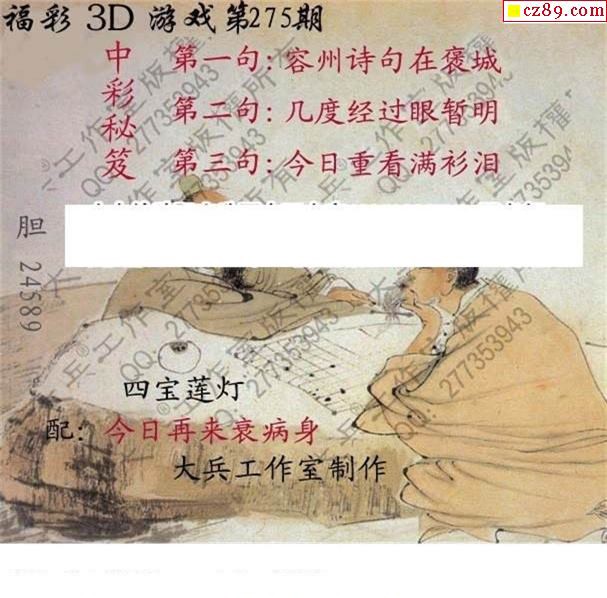 福彩 3D 游戏第275期
cz89.com
中彩秘笈
第一句:容州诗句在褒城
第二句:几度经过眼暂明
第三句:今日重看满衫泪
胆 24589
四宝莲灯
配:今日再来衰病身
大兵工作室制作
大兵®工作室版权所有
QQ:277353943